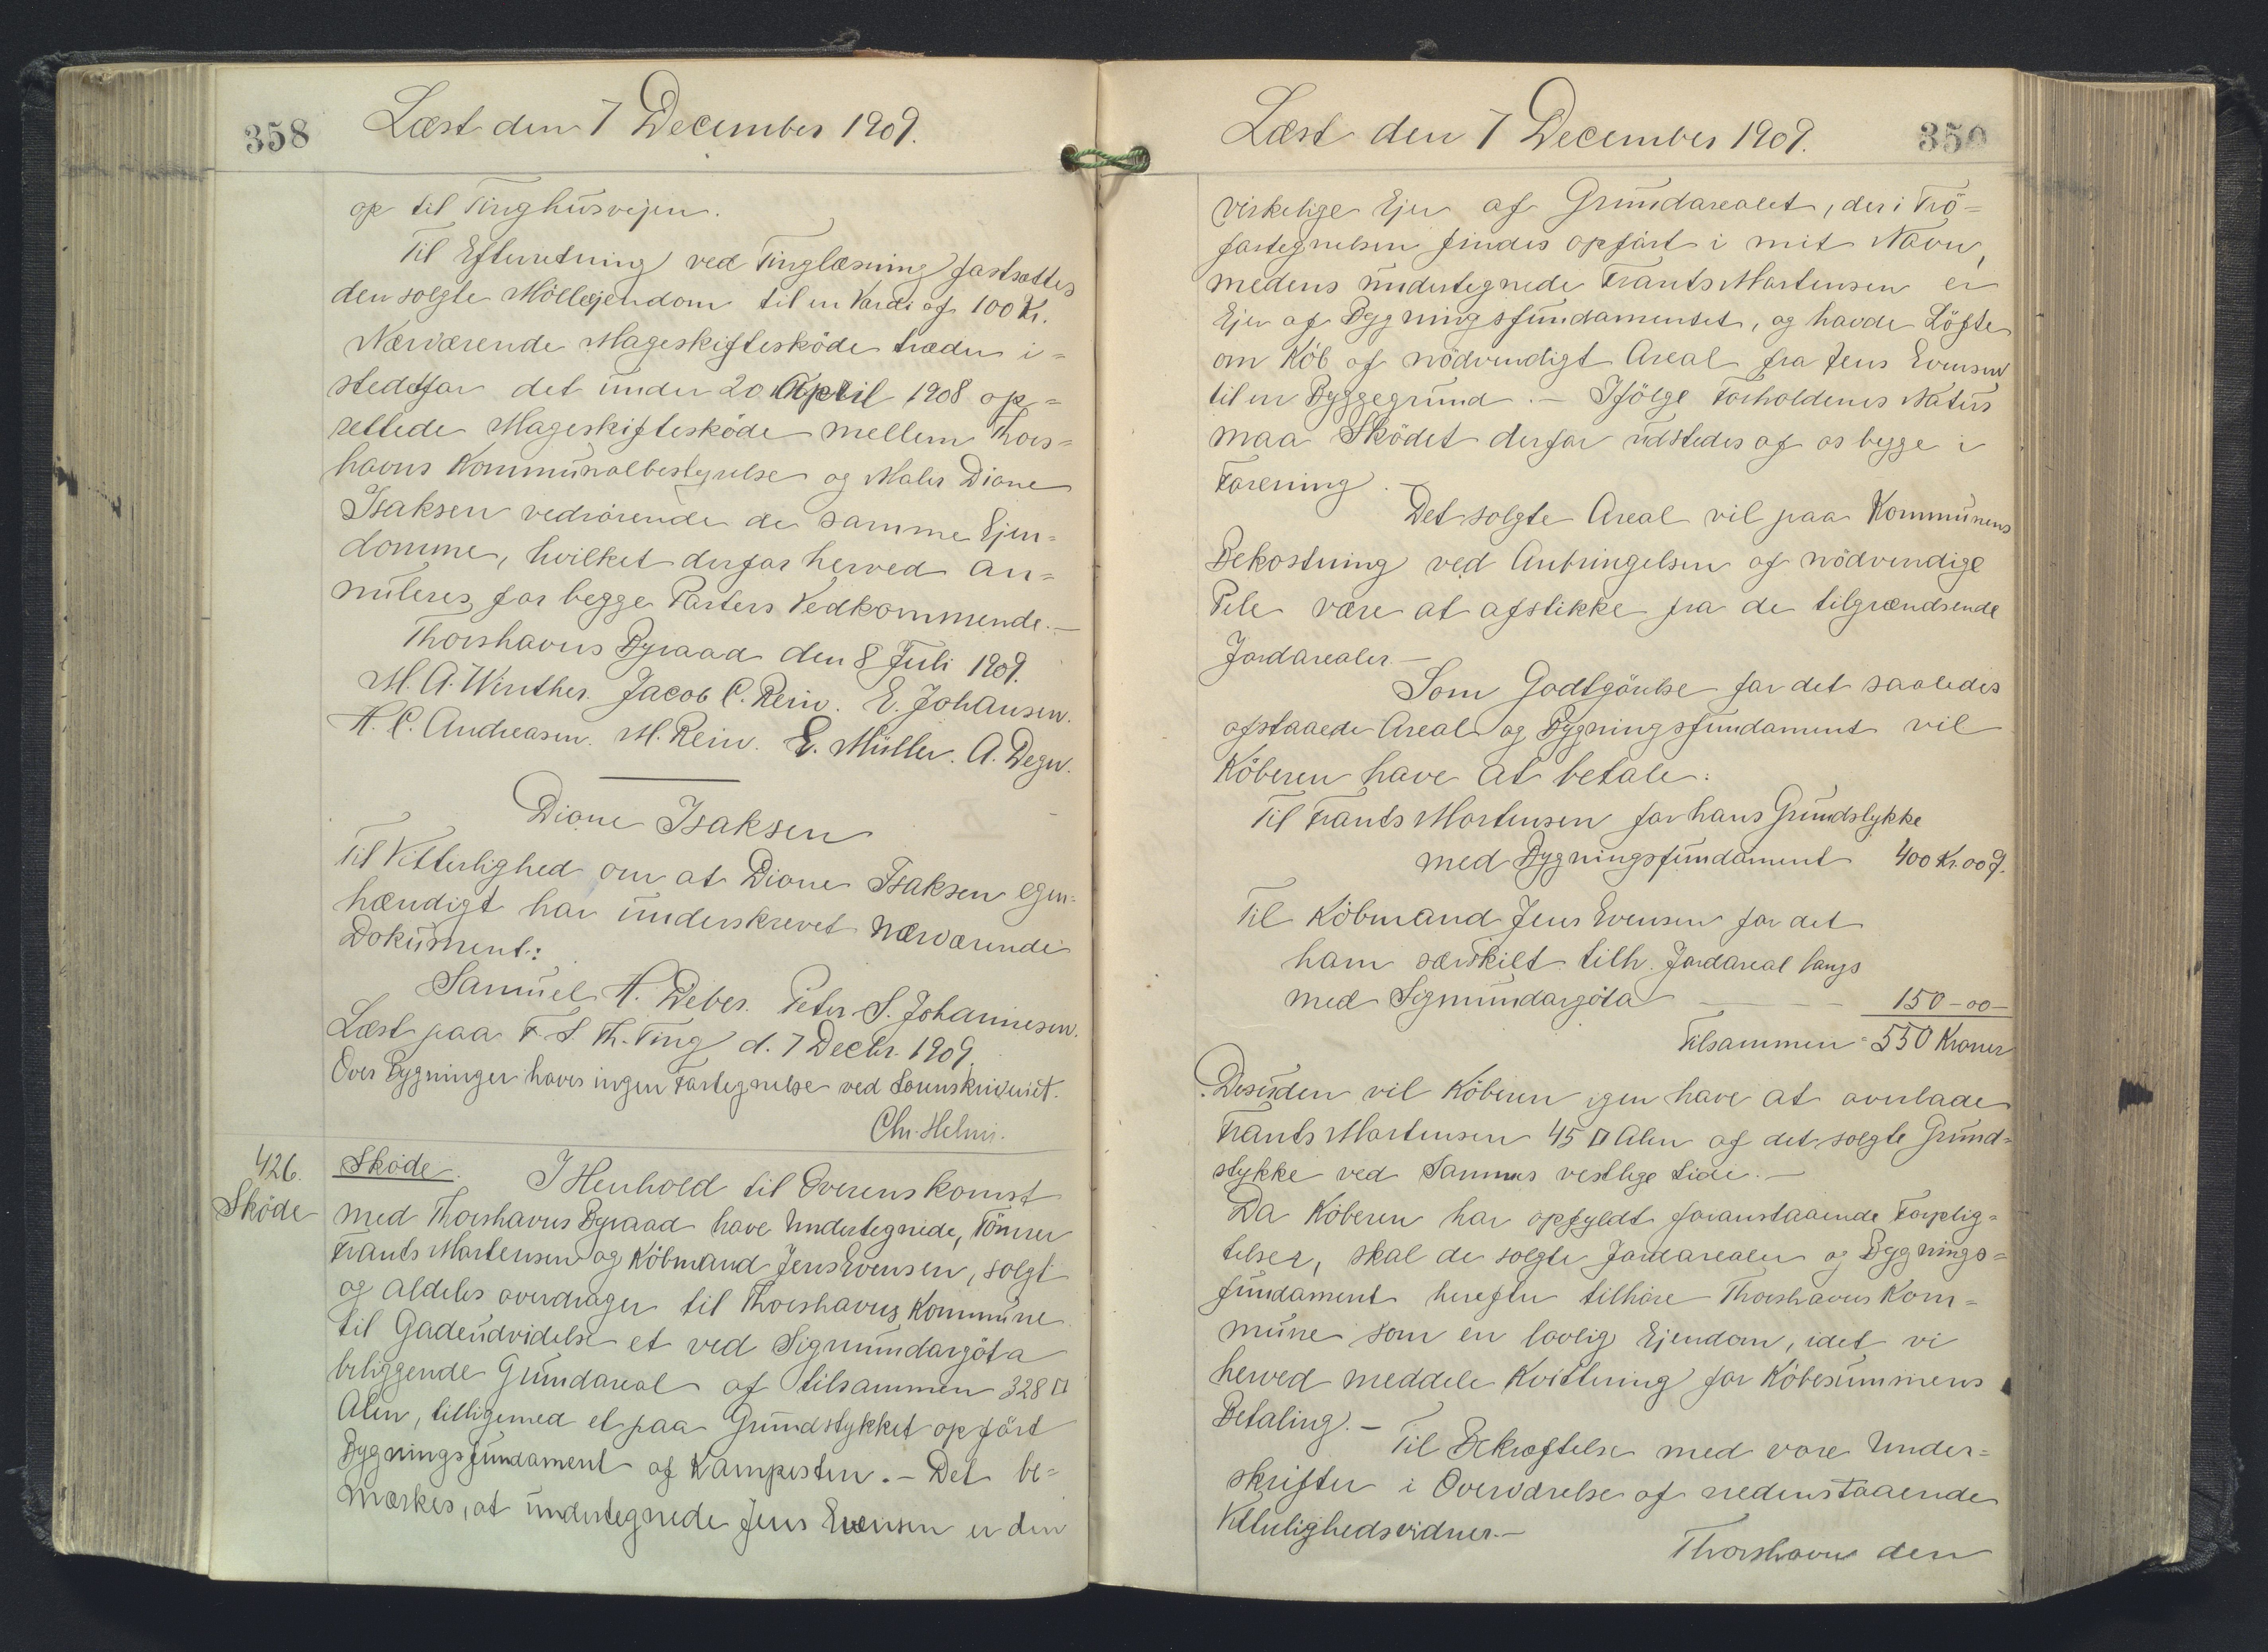 358
Læst den 7 December 1909.
op til Tinghúsvejen.
Til Efterretning ved Tinglæsning fastsættes
den solgte Mölleejendom til en Værdi af 100 Kr.
Nærværende Mageskifteskøde træder i=
stedetfor det únder 20 April 1908 op=
rettede Mageskifteskøde mellem Thors=
havns Kommúnalbestyrelse og Maler Dione
Isaksen vedrørende de samme Ejen=
domme, hvilket derfor herved an=
núleres for begge Parters Vedkommende.—
Thorshavns Byraad den 8 Juli 1909.
M. A. Winther. Jacob C. Rein. E. Johansen.
H. C. Andreasen. M. Rein. E. Müller. A. Degn.
Dione Isaksen
Til Vitterlighed om at Dione Isaksen egen=
hændigt har únderskrevet nærværende
Dokúment:
Samúel H. Debes. Peter S. Johannesen.
Læst paa F. S. Th. Ting d. 7 Decbr. 1909.
Over Bygninger haves ingen Fortegnelse ved Sorenskriveriet.
Chr. Helms.
426.
Sköde
Sköde. I Henhold til Overenskomst
med Thorshavns Byraad have Undertegnede, Tömrer
Frants Mortensen og Köbmand Jens Evensen, solgt
og aldeles overdrager til Thorshavns Kommúne
til Gadeúdvidelse et ved Sigmúndargöta
beliggende Grúndareal af tilsammen 328 □
Alen, tilligemed et paa Grúndstykket opfört
Bygningsfúndament af Kampesten.— Det be=
mærkes, at úndertegnede Jens Evensen er den
Læst den 7 December 1909.
359
virkelige Ejer af Grúndarealet, der i Trö=
fortegnelsen findes opfört i mit Navn,
medens úndertegnede Frants Mortensen er
Ejer af Bygningsfúndamentet, og havde Löfte
om Köb af nödvendigt Areal fra Jens Evensen
til en Byggegrúnd.— Ifölge Forholdenes Natúr
maa Sködet derfor údstedes af os begge i
Forening.—
Det solgte Areal vil paa Kommúnens
Bekostning ved Anbringelsen af nödvendige
Pele være at afstikke fra de tilgrændsende
Jordarealer.—
Som Godtgörelse for det saaledes
afstaaede Areal og Bygningsfúndament vil
Köberen have at betale:
Til Frants Mortensen for hans Grúndstykke
med Bygningsfúndament 400 Kr. 00 Ø.
Til Köbmand Jens Evensen for det
ham særskilt tilh. Jordareal langs
med Sigmúndargöta — — — 150 - 00 -
Tilsammen = 550 Kroner
Desúden vil Köberen igen have at overlade
Frants Mortensen 45 □ Alen af det solgte Grúnd=
stykke ved Sammes vestlige Side.—
Da Köberen har opfyldt foranstaaende Forplig=
telser, skal de solgte Jordarealer og Bygnings=
fúndament herefter tilhöre Thorshavns Kom=
múne som en lovlig Ejendom, idet vi
herved meddele Kvittering for Köbesúmmens
Betaling.— Til Bekræftelse med vore Únder=
skrifter i Overværelse af nedenstaaende
Vitterlighedsvidner.—
Thorshavn den